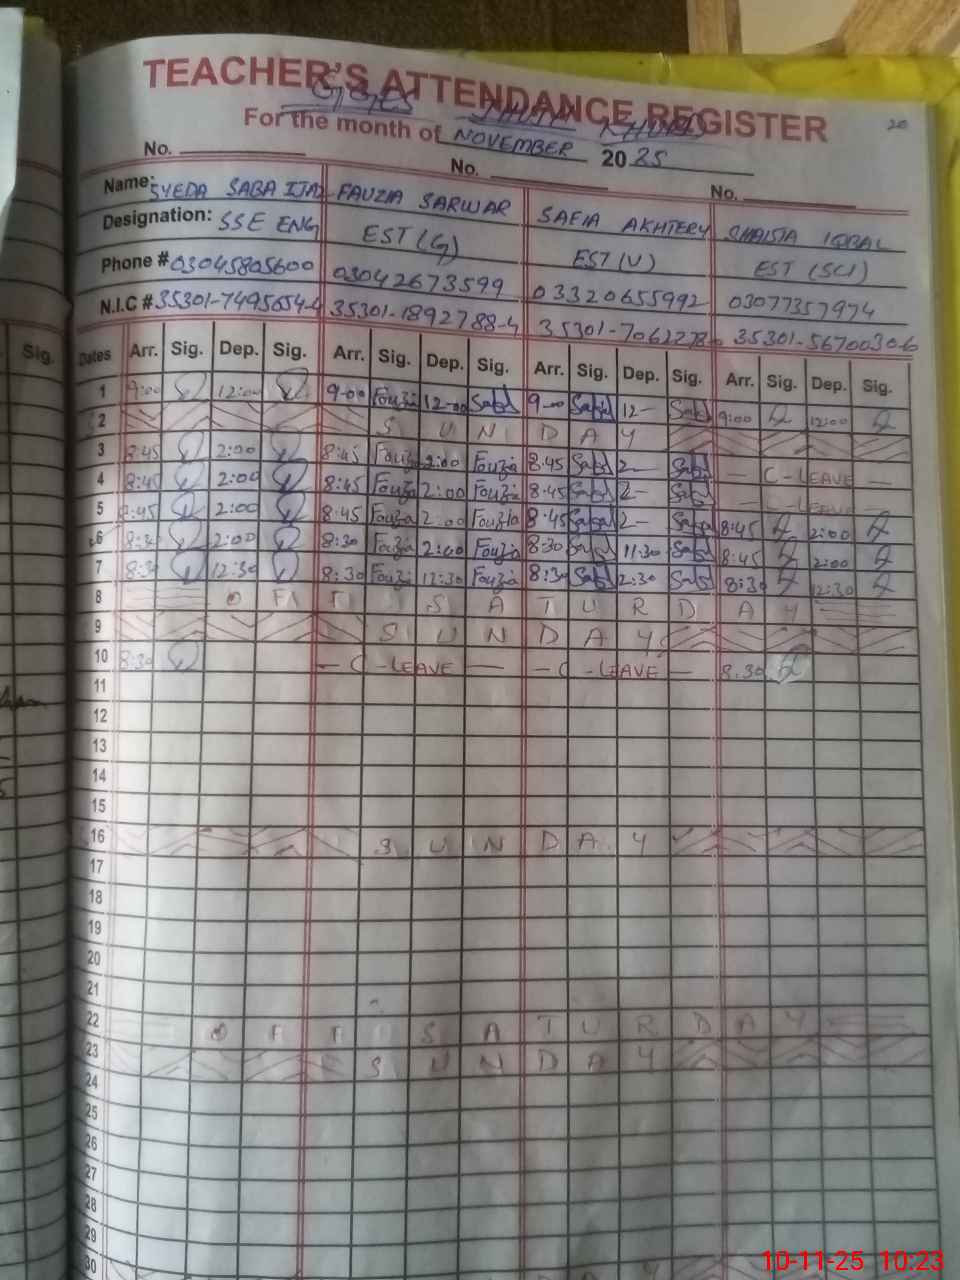 TEACHER'S ATTENDANCE REGISTER
20
GGES
For the month of NOVEMBER 2025
No. No. No.
Name: SYEDA SABA IJAZ FAUZIA SARWAR SAFIA AKHTER SHAISTA IQBAL
Designation: SSE ENG EST (G) EST (U) EST (SCI)
Phone # 03045805600 03042673599 03320655992 03077357974
N.I.C # 35301-7495654-4 35301-1892788-4 35301-7062278- 35301-5670030-6
Sig.
Dates Arr. Sig. Dep. Sig. Arr. Sig. Dep. Sig. Arr. Sig. Dep. Sig. Arr. Sig. Dep. Sig.
1 9:00 12:00 9-00 12-00 9-00 12- 9:00 12:00
2 S U N D A Y
3 8:45 2:00 8:45 Fouzia 2:00 Fouzia 8:45 2- — C-LEAVE —
4 8:45 2:00 8:45 Fouzia 2:00 Fouzia 8:45 2- — C-LEAVE —
5 8:45 2:00 8:45 Fouzia 2:00 Fouzia 8:45 2- 8:45 2:00
6 8:30 2:00 8:30 Fouzia 2:00 Fouzia 8:30 11:30 8:45 2:00
7 8:30 12:30 8:30 Fouzia 12:30 Fouzia 8:30 2:30 8:30 12:30
8 O F F S A T U R D A Y
9 S U N D A Y
10 8:30 — C-LEAVE — — C-LEAVE — 8:30
11
12
13
14
15
16 S U N D A Y
17
18
19
20
21
22 O F F S A T U R D A Y
23 S U N D A Y
24
25
26
27
28
29
30
10-11-25 10:23